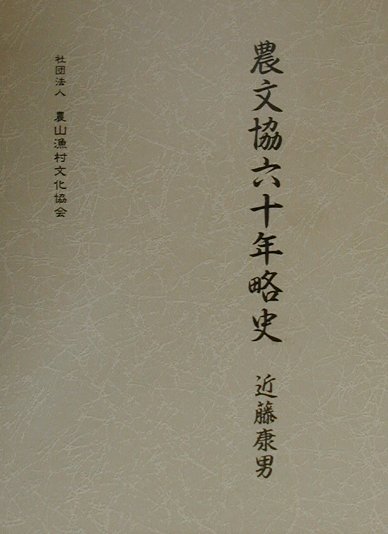 農文協六十年略史 近藤康男
社団法人 農山漁村文化協会